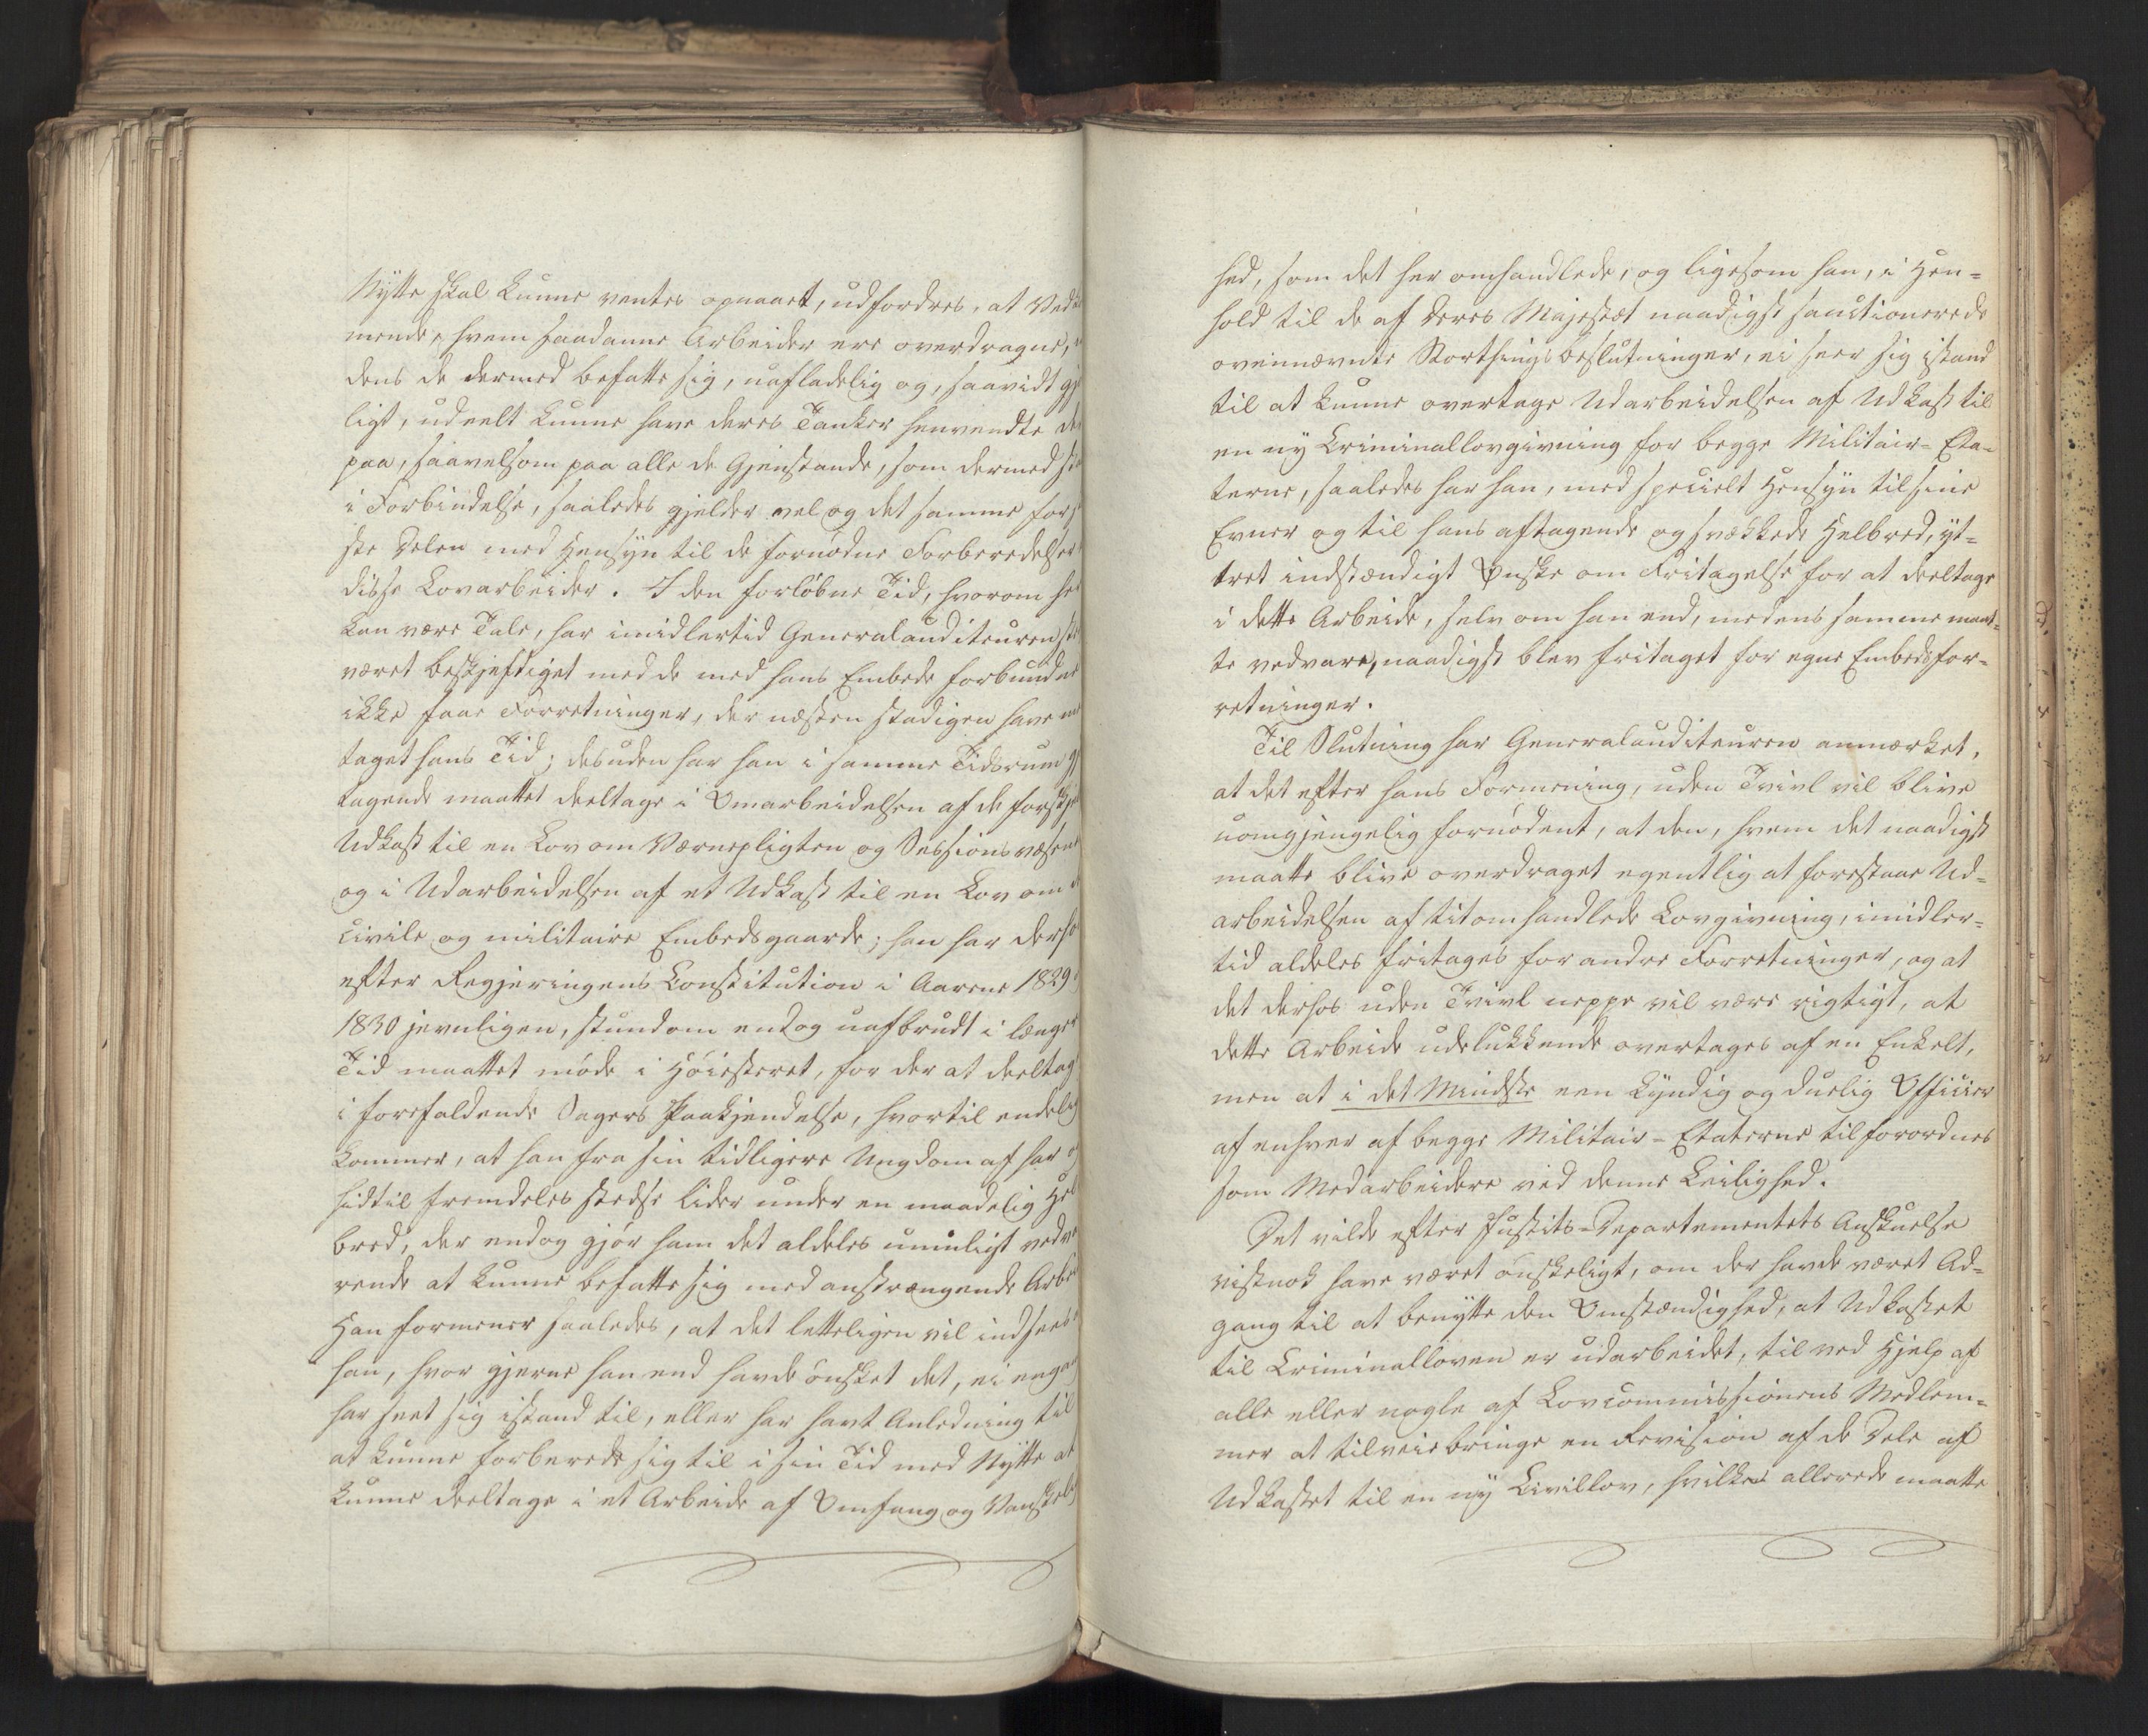 Nytte skal kunne ventes opnaaet, udfordres, at Vedk
mende, hvem saadanne Arbeider ere overdragne,
dens de dermed befatte sig, uafladelig og, saavidt gjø
ligt, udeelt kunne have deres Tanker henvendte der
paa, saavelsom paa alle de Gjenstande, som dermed staa
i Forbindelse, saaledes gjelder vel og det samme for
ste Delen med Hensyn til de fornødne Forberedelser
disse Lovarbeider. I den forløbne Tid, hvorom her
kan være Tale, har imidlertid Generalauditeuren
været beskjeftiget med de med hans Embede forbundne
ikke faae Forretninger, der næsten stadigen have
taget hans Tid; desuden har han i samme Tidsrum
tagende maattet deeltage i Omarbeidelsen af de forskje
Udkast til en Lov om Værnepligten og Sessionsvæsenet
og i Udarbeidelsen af et Udkast til en Lov om
civile og militaire Embedsgaarde; han har derho
efter Regjeringens Constitution i Aarene 1829
1830 jevnligen, stundom endog uafbrudt i længer
Tid maattet møde i Høiesteret, for der at deeltag
i forefaldende Sagers Paakjendelse, hvortil endelig
kommer, at han fra sin tidligere Ungdom af har
hidtil fremdeles stedse lider under en maadelig Hel
bred, der endog gjør ham det aldeles umuligt vedva
rende at kunne befatte sig med anstrængende Arbei
Han formener saaledes, at det letteligen vil indsees
han, hvor gjerne han end havde ønsket det, ei engang
har seet sig istand til, eller har havt Anledning til
at kunne forberede sig til i sin Tid med Nytte at
kunne deeltage i et Arbeide af Omfang og Vanskelig
hed, som det her omhandlede, og ligesom han, i Hen-
hold til de af Deres Majestæt naadigst sanctionerede
ovennævnte Storthingsbeslutninger, ei seer sig istand
til at kunne overtage Udarbeidelsen af Udkast til
en ny Criminallovgivning for begge Militair-Eta-
terne, saaledes har han, med specielt Hensyn til sine
Evner og til hans aftagende og svækkede Helbred, yt-
tret indstændigt Ønske om Fritagelse for at deeltage
i dette Arbeide, selv om han end, medens samme maat-
te vedvare, naadigst blev fritaget for egne Embedsfor-
retninger.
Til Slutning har Generalauditeuren anmærket,
at det efter hans Formening, uden Tvivl vil blive
uomgjengelig fornødent, at den, hvem det naadigst
maatte blive overdraget egentlig at forestaae Ud-
arbeidelsen af titomhandlede Lovgivning, imidler-
tid aldeles fritages for andre Forretninger, og at
det derhos uden Tvivl neppe vil være rigtigt, at
dette Arbeide udelukkende overtages af en Enkelt,
men at i det Mindste een kyndig og duelig Officier
af enhver af begge Militair-Etaterne tilforordnes
som Medarbeidere ved denne Leilighed.
Det vilde efter Justits-Departementets Anskuelse
vistnok have været ønskeligt, om der havde været Ad-
gang til at benytte den Omstændighed, at Udkastet
til Criminalloven er udarbeidet, til ved Hjelp af
alle eller nogle af Lovcommissionens Medlem-
mer at tilveiebringe en Revision af de Dele af
Udkastet til en ny Civillov, hvilke allerede maatte